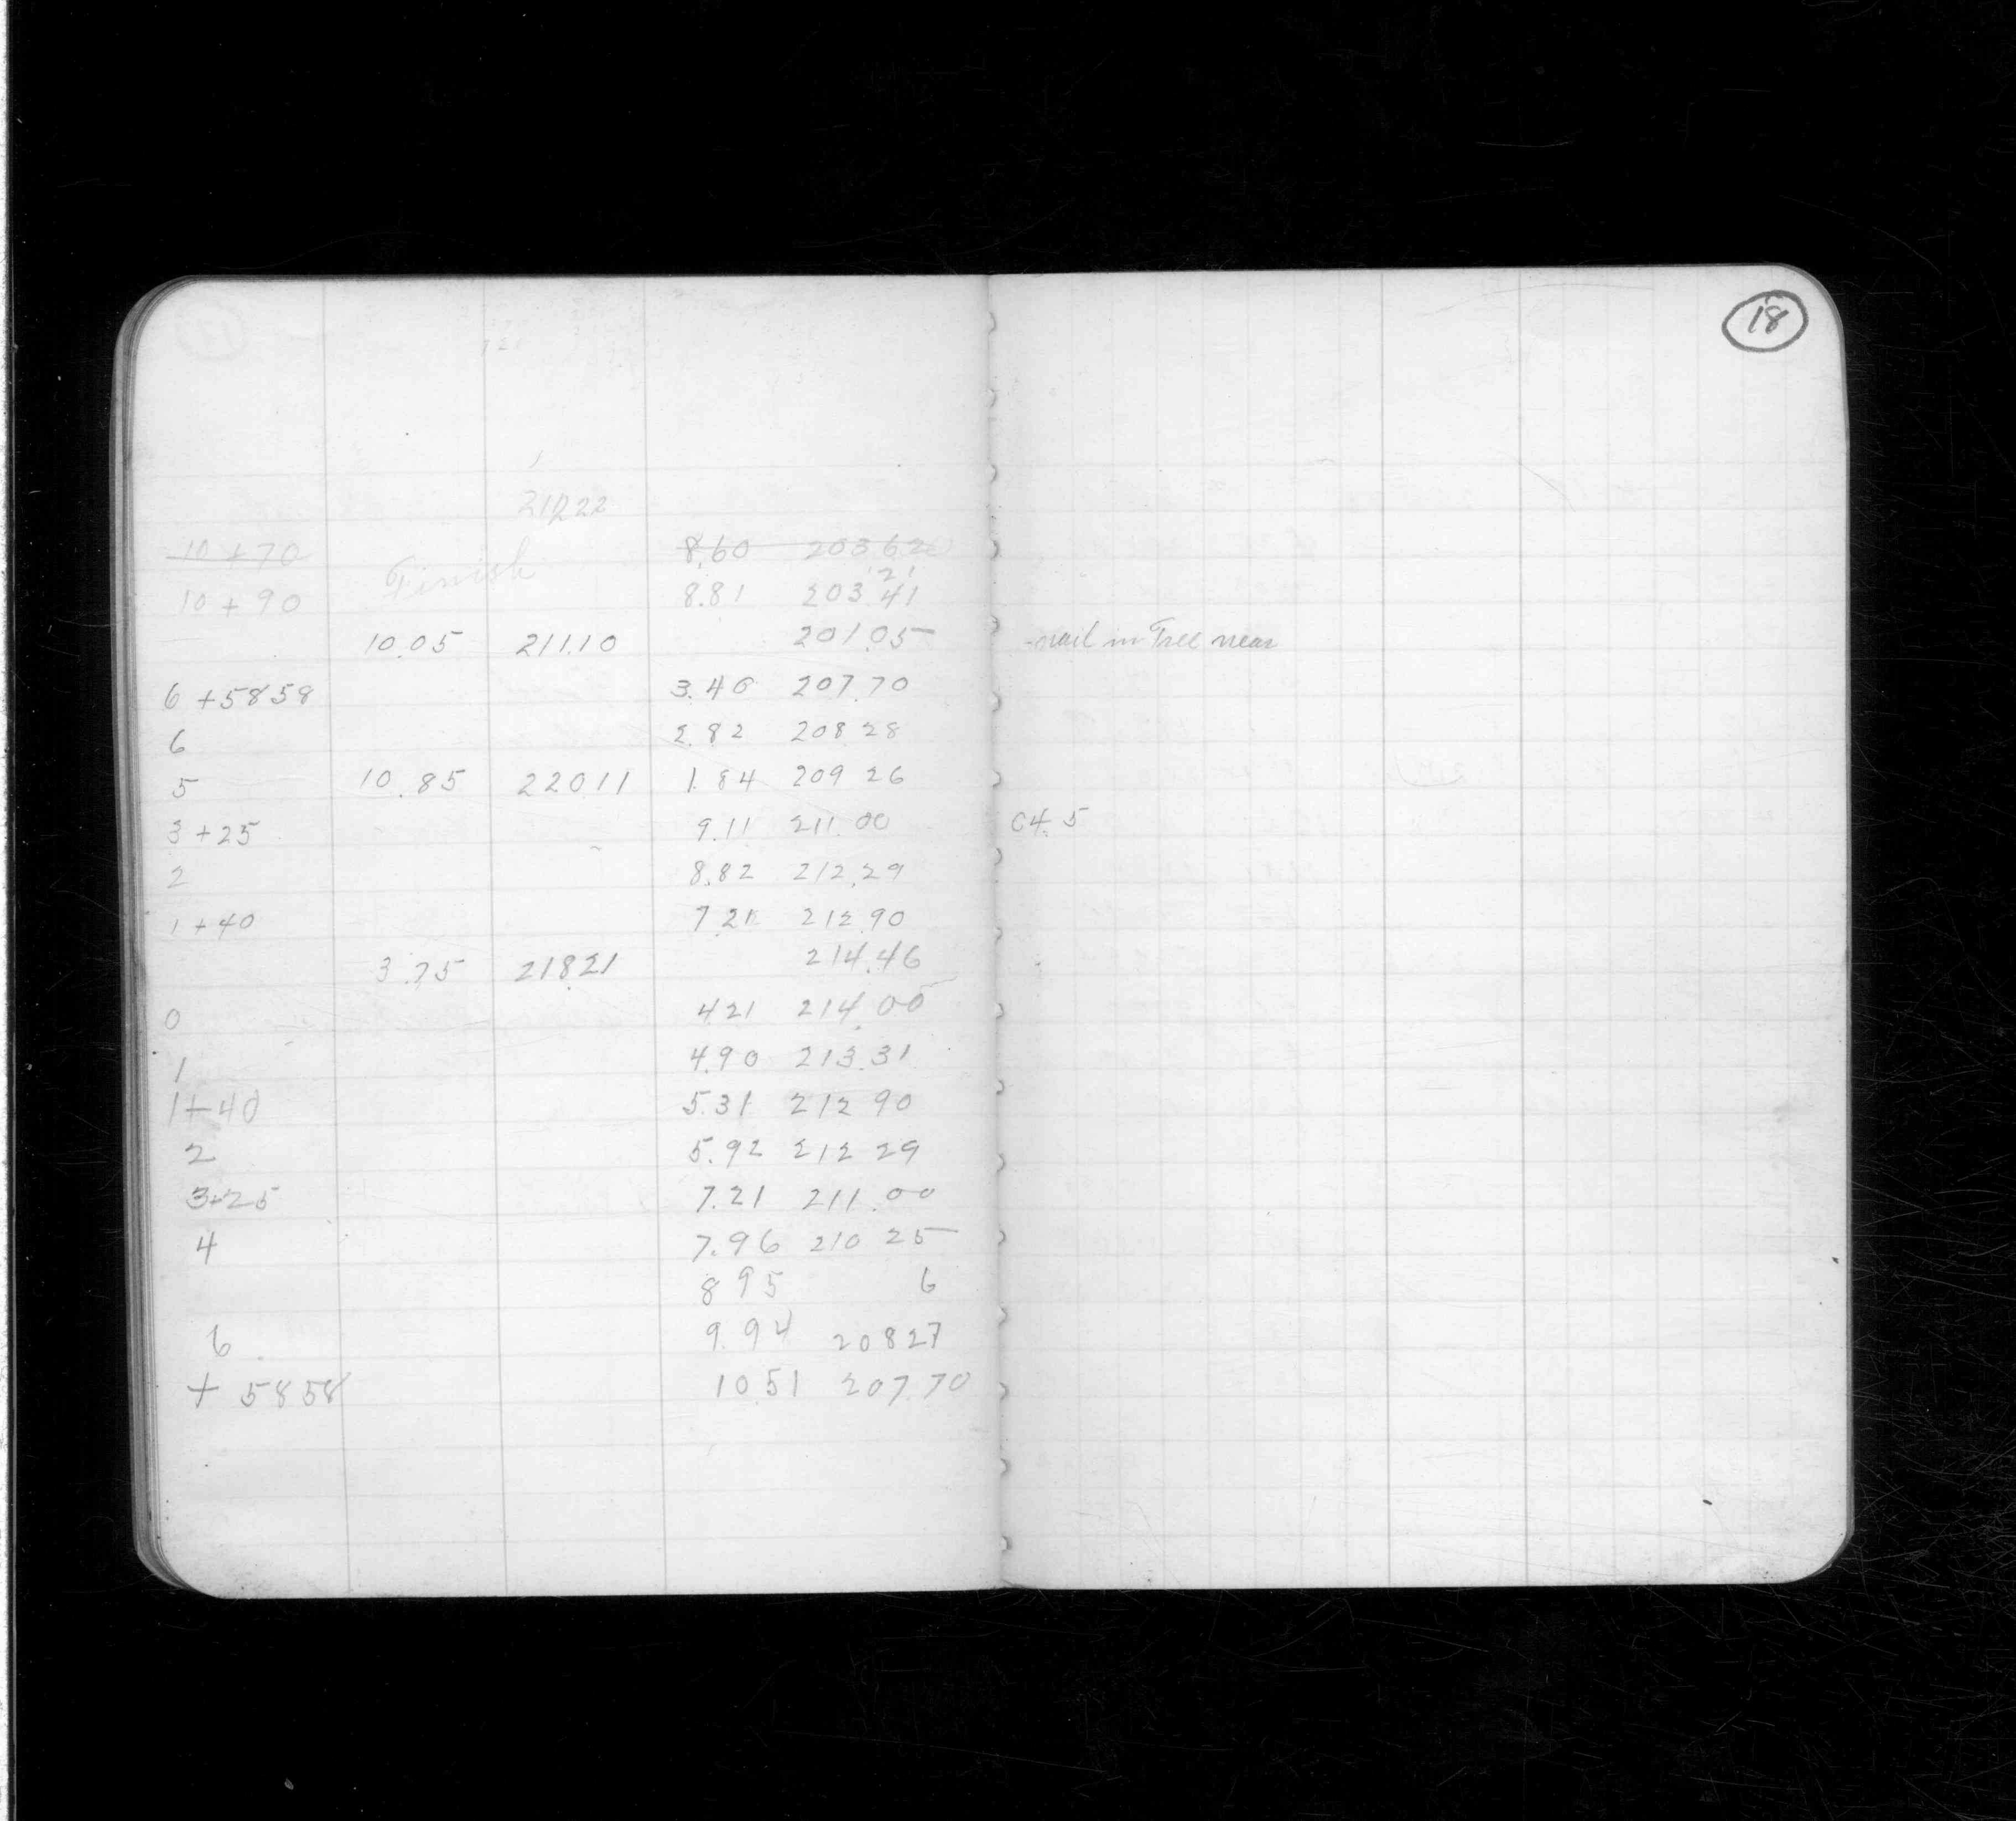 18
212.22
10 + 70 8.60 203 62
Finish
21
10 + 90 8.81 203 41
10.05 211.10 201.05 nail in Tree near
6 +5858 3.40 207.70
6 2.82 208 28
5 10.85 220 11 1.84 209 26
3 +25 9.11 211.00 C4.5
2 8.82 212.29
1 +40 7 21 212.90
3.75 218.21 214.46
0 4 21 214.00
1 4.90 213.31
1+40 5.31 212 90
2 5.92 212 29
3+25 7.21 211.00
4 7.96 210 25
8 95 6
6 9.94 208 27
+ 5858 10 51 207.70